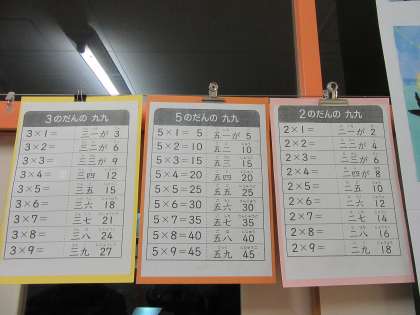 3のだんの 九九
3×1= 三一が 3
3×2= 三二が 6
3×3= 三三が 9
3×4= 三四 12
3×5= 三五 15
3×6= 三六 18
3×7= 三七 21
3×8= 三八 24
3×9= 三九 27
5のだんの 九九
5×1= 5 五一が 5
5×2=10 五二 10
5×3=15 五三 15
5×4=20 五四 20
5×5=25 五五 25
5×6=30 五六 30
5×7=35 五七 35
5×8=40 五八 40
5×9=45 五九 45
2のだんの 九九
2×1= 二一が 2
2×2= 二二が 4
2×3= 二三が 6
2×4= 二四が 8
2×5= 二五 10
2×6= 二六 12
2×7= 二七 14
2×8= 二八 16
2×9= 二九 18